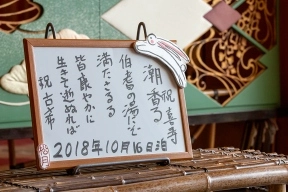 祝喜寿
潮香る
伯耆の湯にて
満たさるる
皆康やかに
生きて逝ぬれば
祝古希
2018年10月16日泊